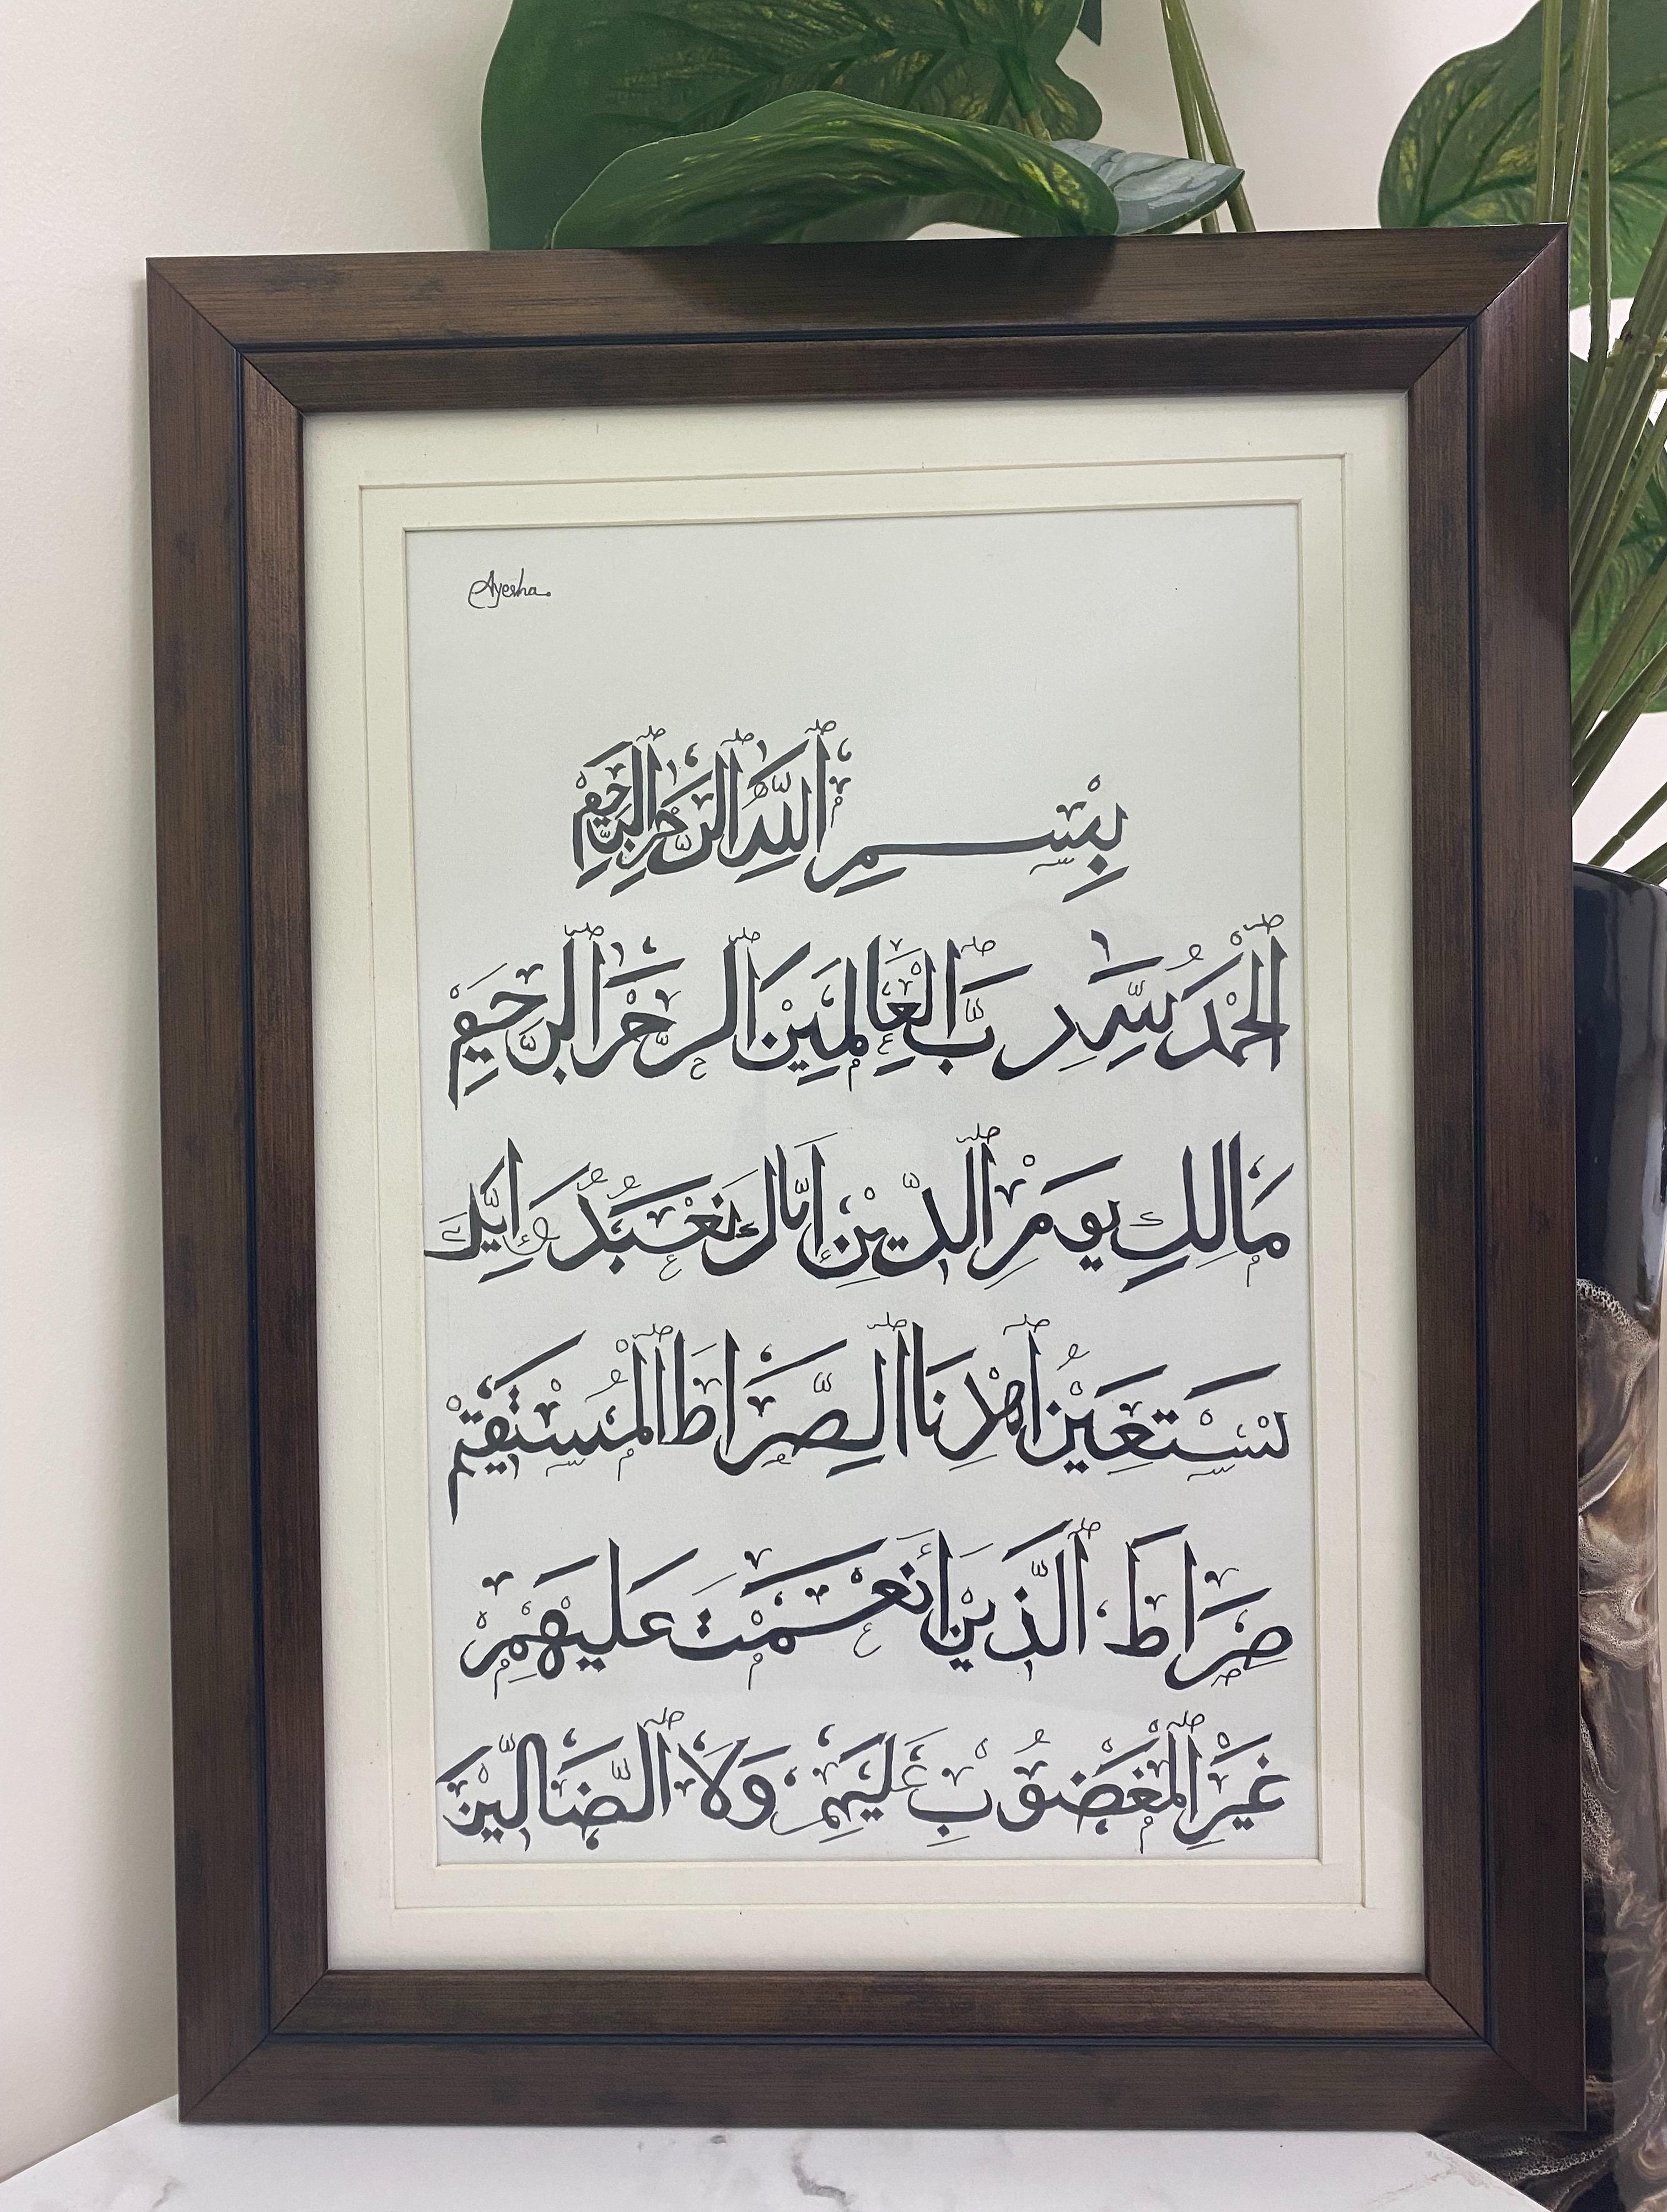 Ayesha
بِسْمِ ٱللَّهِ ٱلرَّحْمَٰنِ ٱلرَّحِيمِ
ٱلْحَمْدُ لِلَّهِ رَبِّ ٱلْعَالَمِينَ ٱلرَّحْمَٰنِ ٱلرَّحِيمِ
مَالِكِ يَوْمِ ٱلدِّينِ إِيَّاكَ نَعْبُدُ وَإِيَّكَ
نَسْتَعِينُ ٱهْدِنَا ٱلصِّرَاطَ ٱلْمُسْتَقِيمَ
صِرَاطَ ٱلَّذِينَ أَنْعَمْتَ عَلَيْهِمْ
غَيْرِ ٱلْمَغْضُوبِ عَلَيْهِمْ وَلَا ٱلضَّالِّينَ